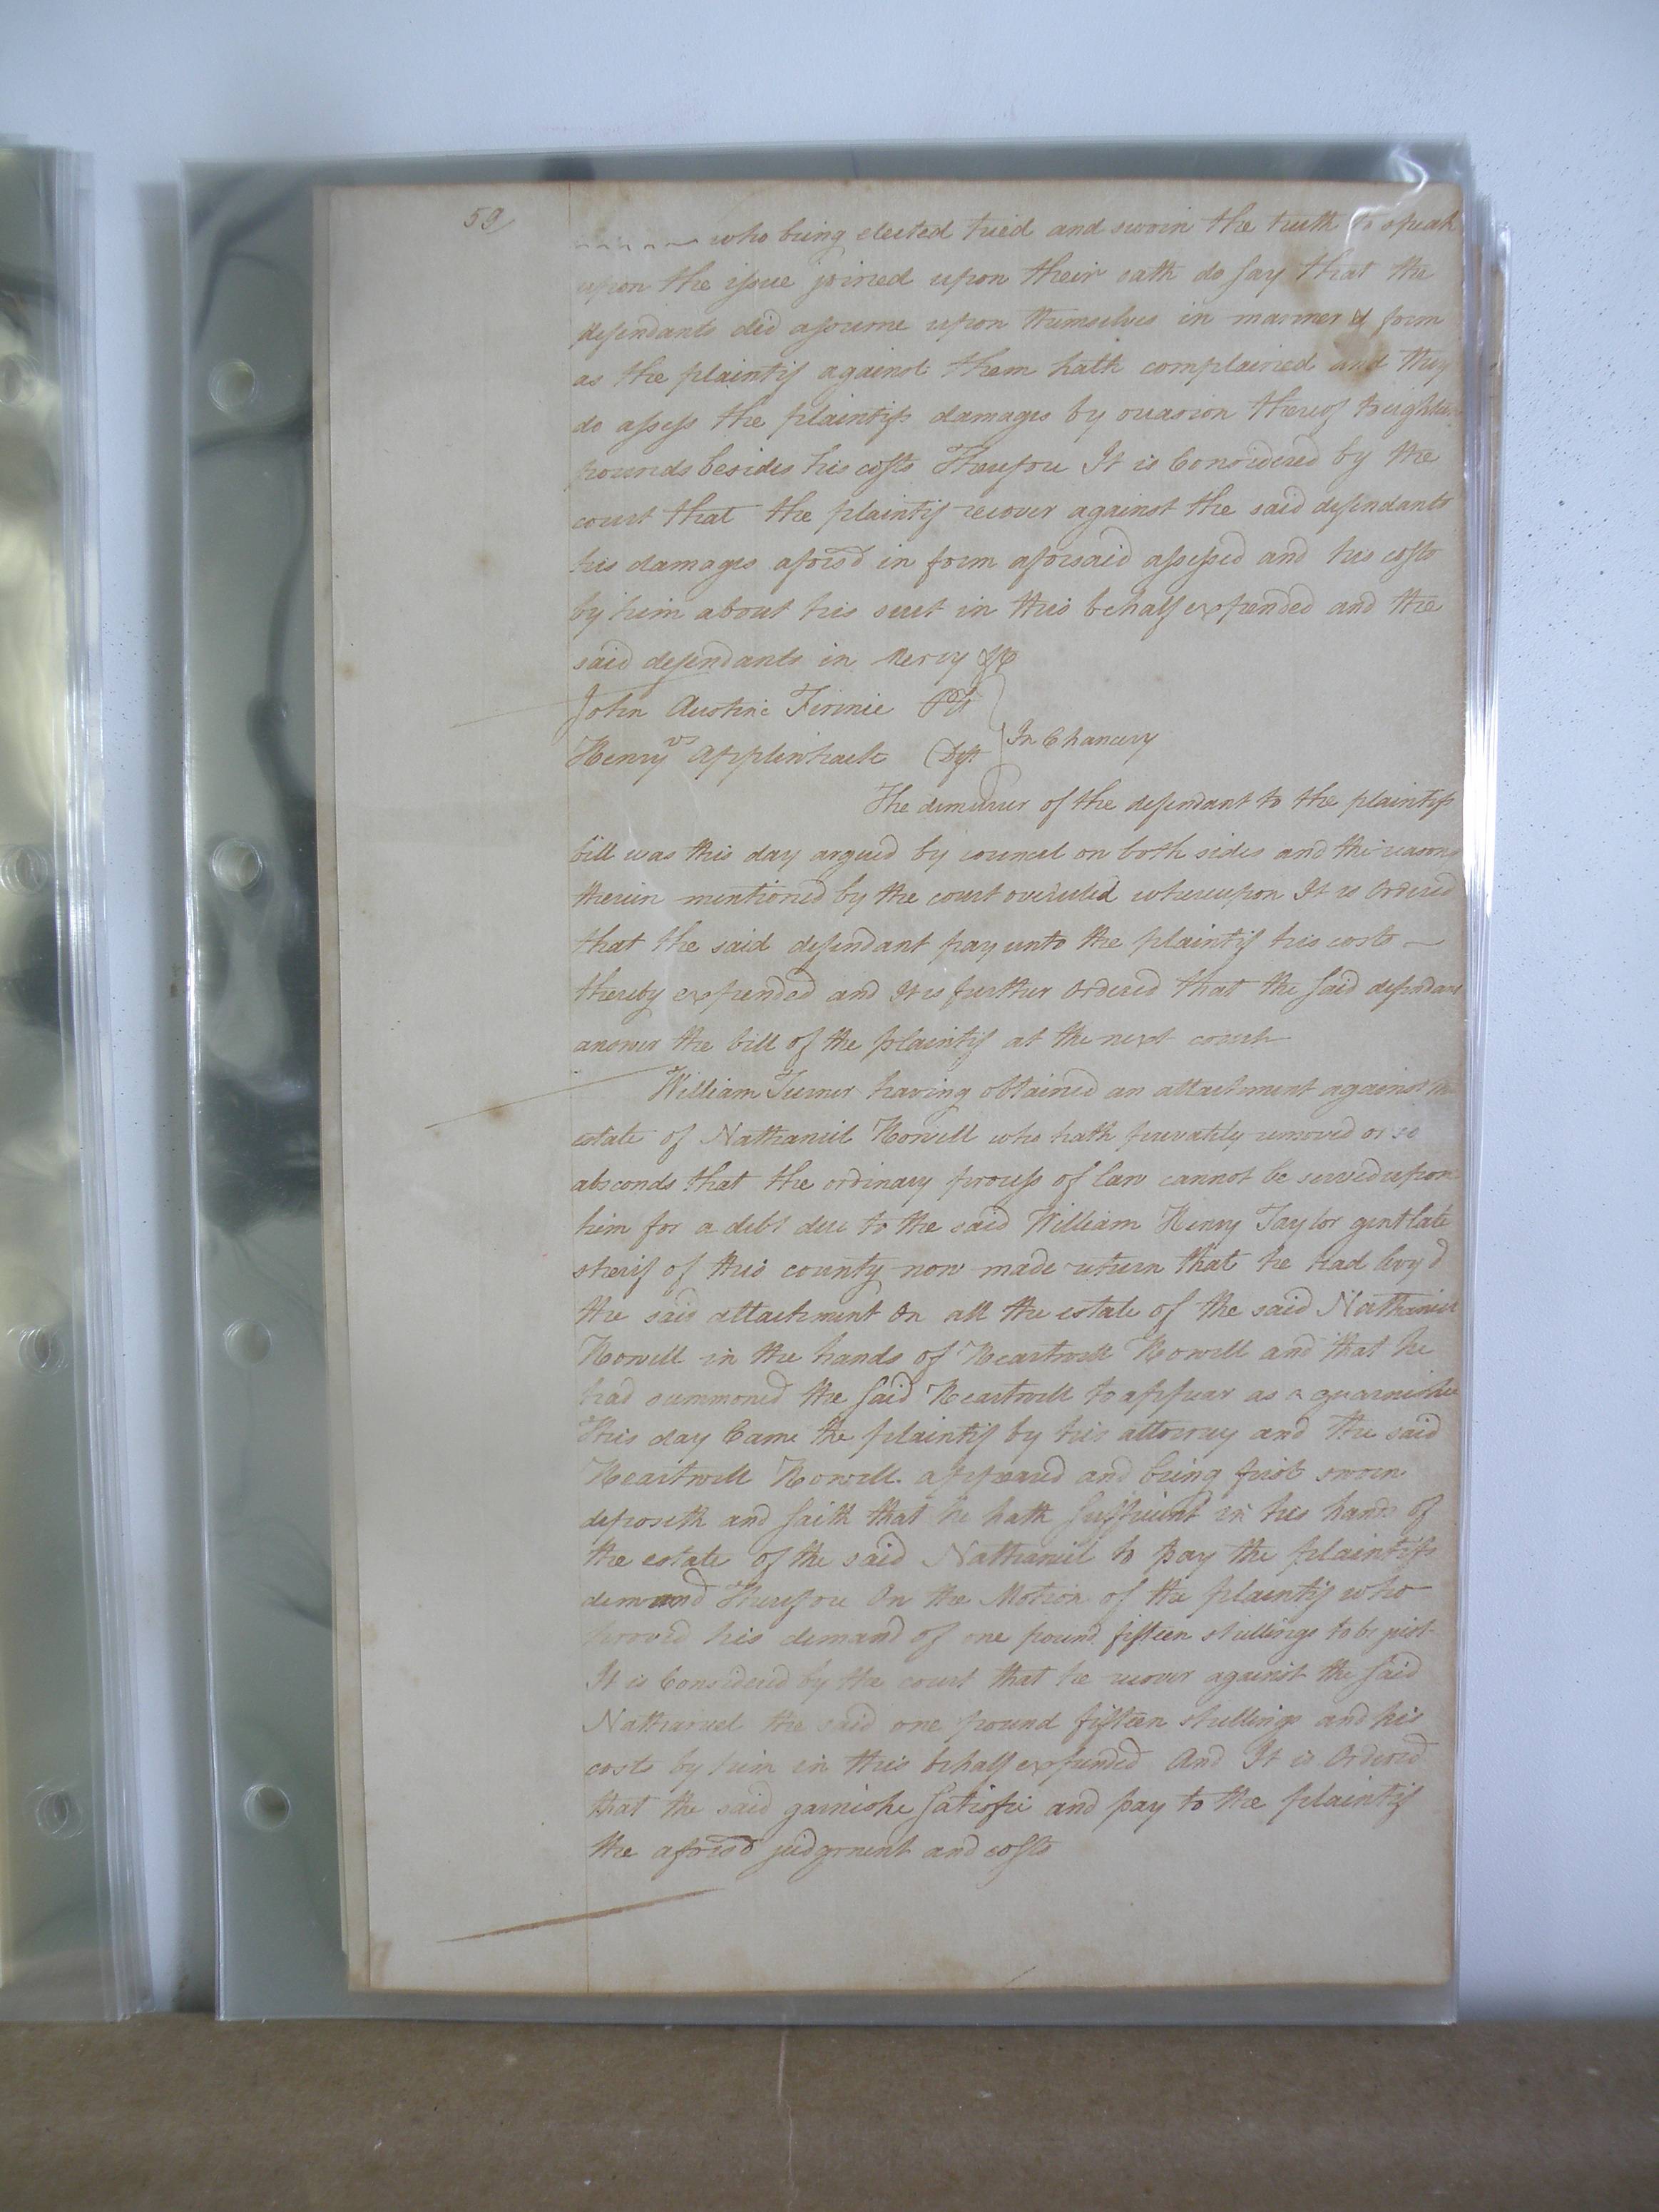 59
who being elected tried and sworn the truth to speak
upon the issue joined upon their oath do say that the
defendants did assume upon themselves in manner & form
as the plaintif against them hath complained and they
do assess the plaintifs damages by occasion thereof to eighteen
pounds besides his costs Therefore It is Considered by the
court that the plaintif recover against the said defendants
his damages aforsd in form aforsaid assessed and his costs
by him about his suit in this behalf expended and the
said defendants in Mercy &c
John Austin Finnie Plt
vs
In Chancery
Henry Applewhaite Deft
The demurrer of the defendant to the plaintifs
bill was this day argued by councel on both sides and the reasons
therein mentioned by the court overruled whereupon It is Ordered
that the said defendant pay unto the plaintif his costs
thereby expended and It is further Ordered that the said defendant
answer the bill of the plaintif at the next court
William Turner having obtained an attachment against the
estate of Nathaniel Howell who hath privately removed or so
absconds that the ordinary process of law cannot be served upon
him for a debt due to the said William Henry Taylor gent late
sherif of this county now made return that he had levy'd
the said attachment on all the estate of the said Nathaniel
Howell in the hands of Heartwell Howell and that he
had summoned the said Heartwell to appear as a guarnishee
This day Came the plaintif by his attorney and the said
Heartwell Howell appeared and being first sworn
deposeth and saith that he hath sufficient in his hands of
the estate of the said Nathaniel to pay the plaintifs
demand Therefore On the Motion of the plaintif who
prooved his demand of one pound fifteen shillings to be just
It is Considered by the court that he recover against the said
Nathaniel the said one pound fifteen shillings and his
costs by him in this behalf expended And It is Ordered
that the said garnishe satisfie and pay to the plaintif
the aforesd judgment and costs